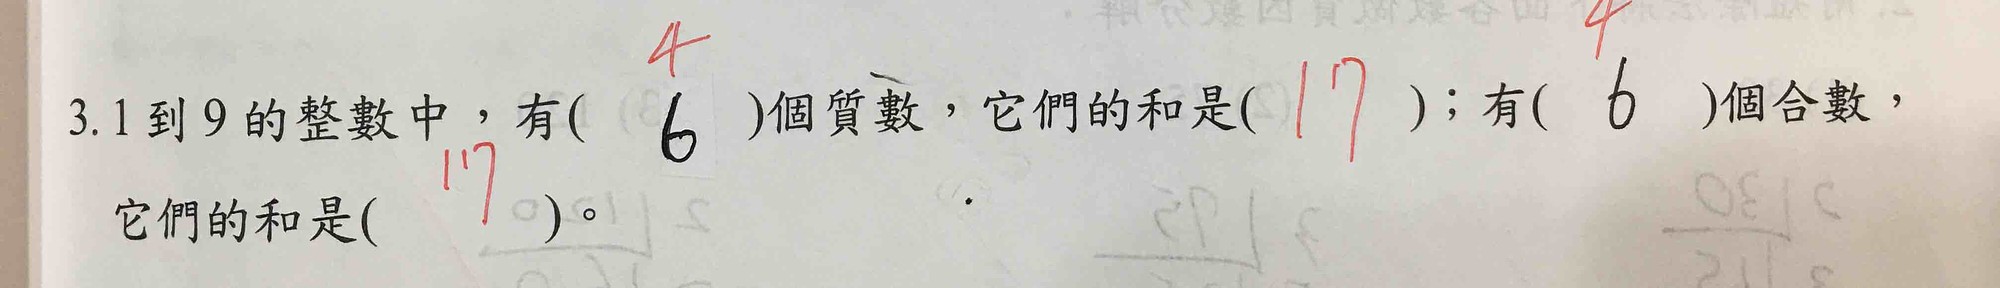 4 4
3. 1到9的整數中，有( 6 )個質數，它們的和是( 17 )；有( 6 )個合數，
它們的和是( 17 )。